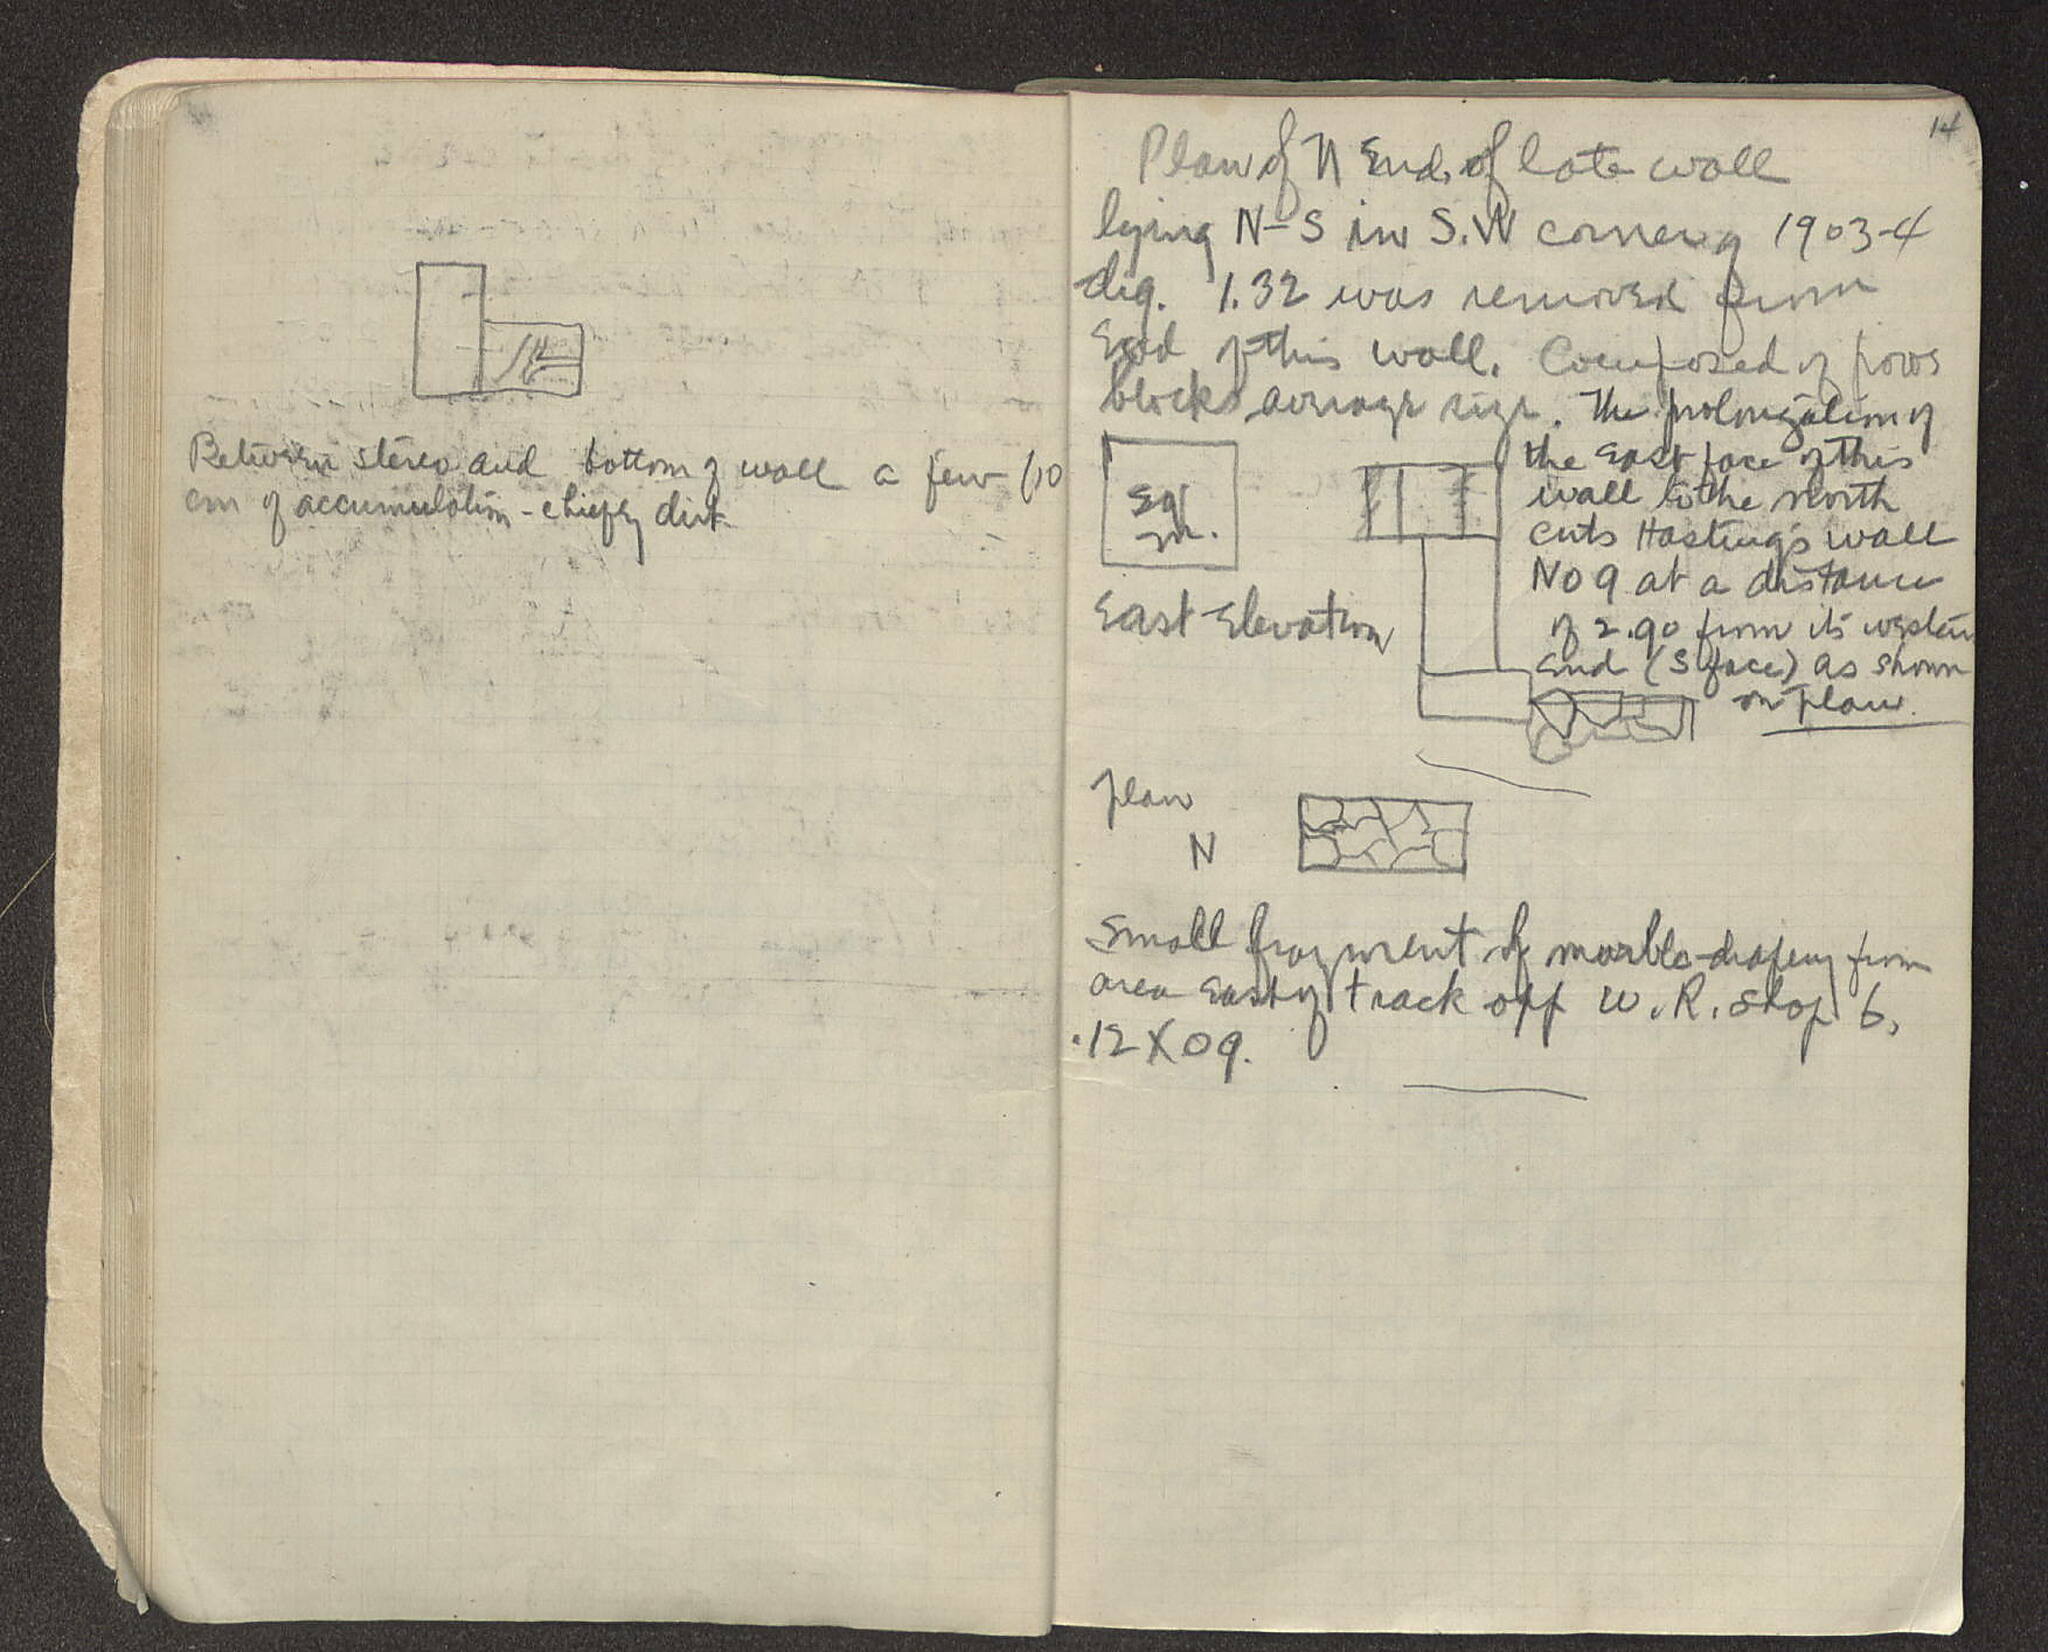 Between stereo and bottom of wall a few (10
cm of accumulation - chiefly dirt
14
Plan of N End. of late wall
lying N-S in S.W corner of 1903-4
dig. 1.32 was removed from
End of this wall. Composed of poros
blocks average size. The prolongation of
the East face of this
wall to the north
cuts Hastings wall
No 9 at a distance
of 2.90 from its western
End (S face) as shown
on plan.
East Elevation
plan
N
Small fragment of marble drapery from
area East of track off W.R. Shop 6,
.12 X 09.